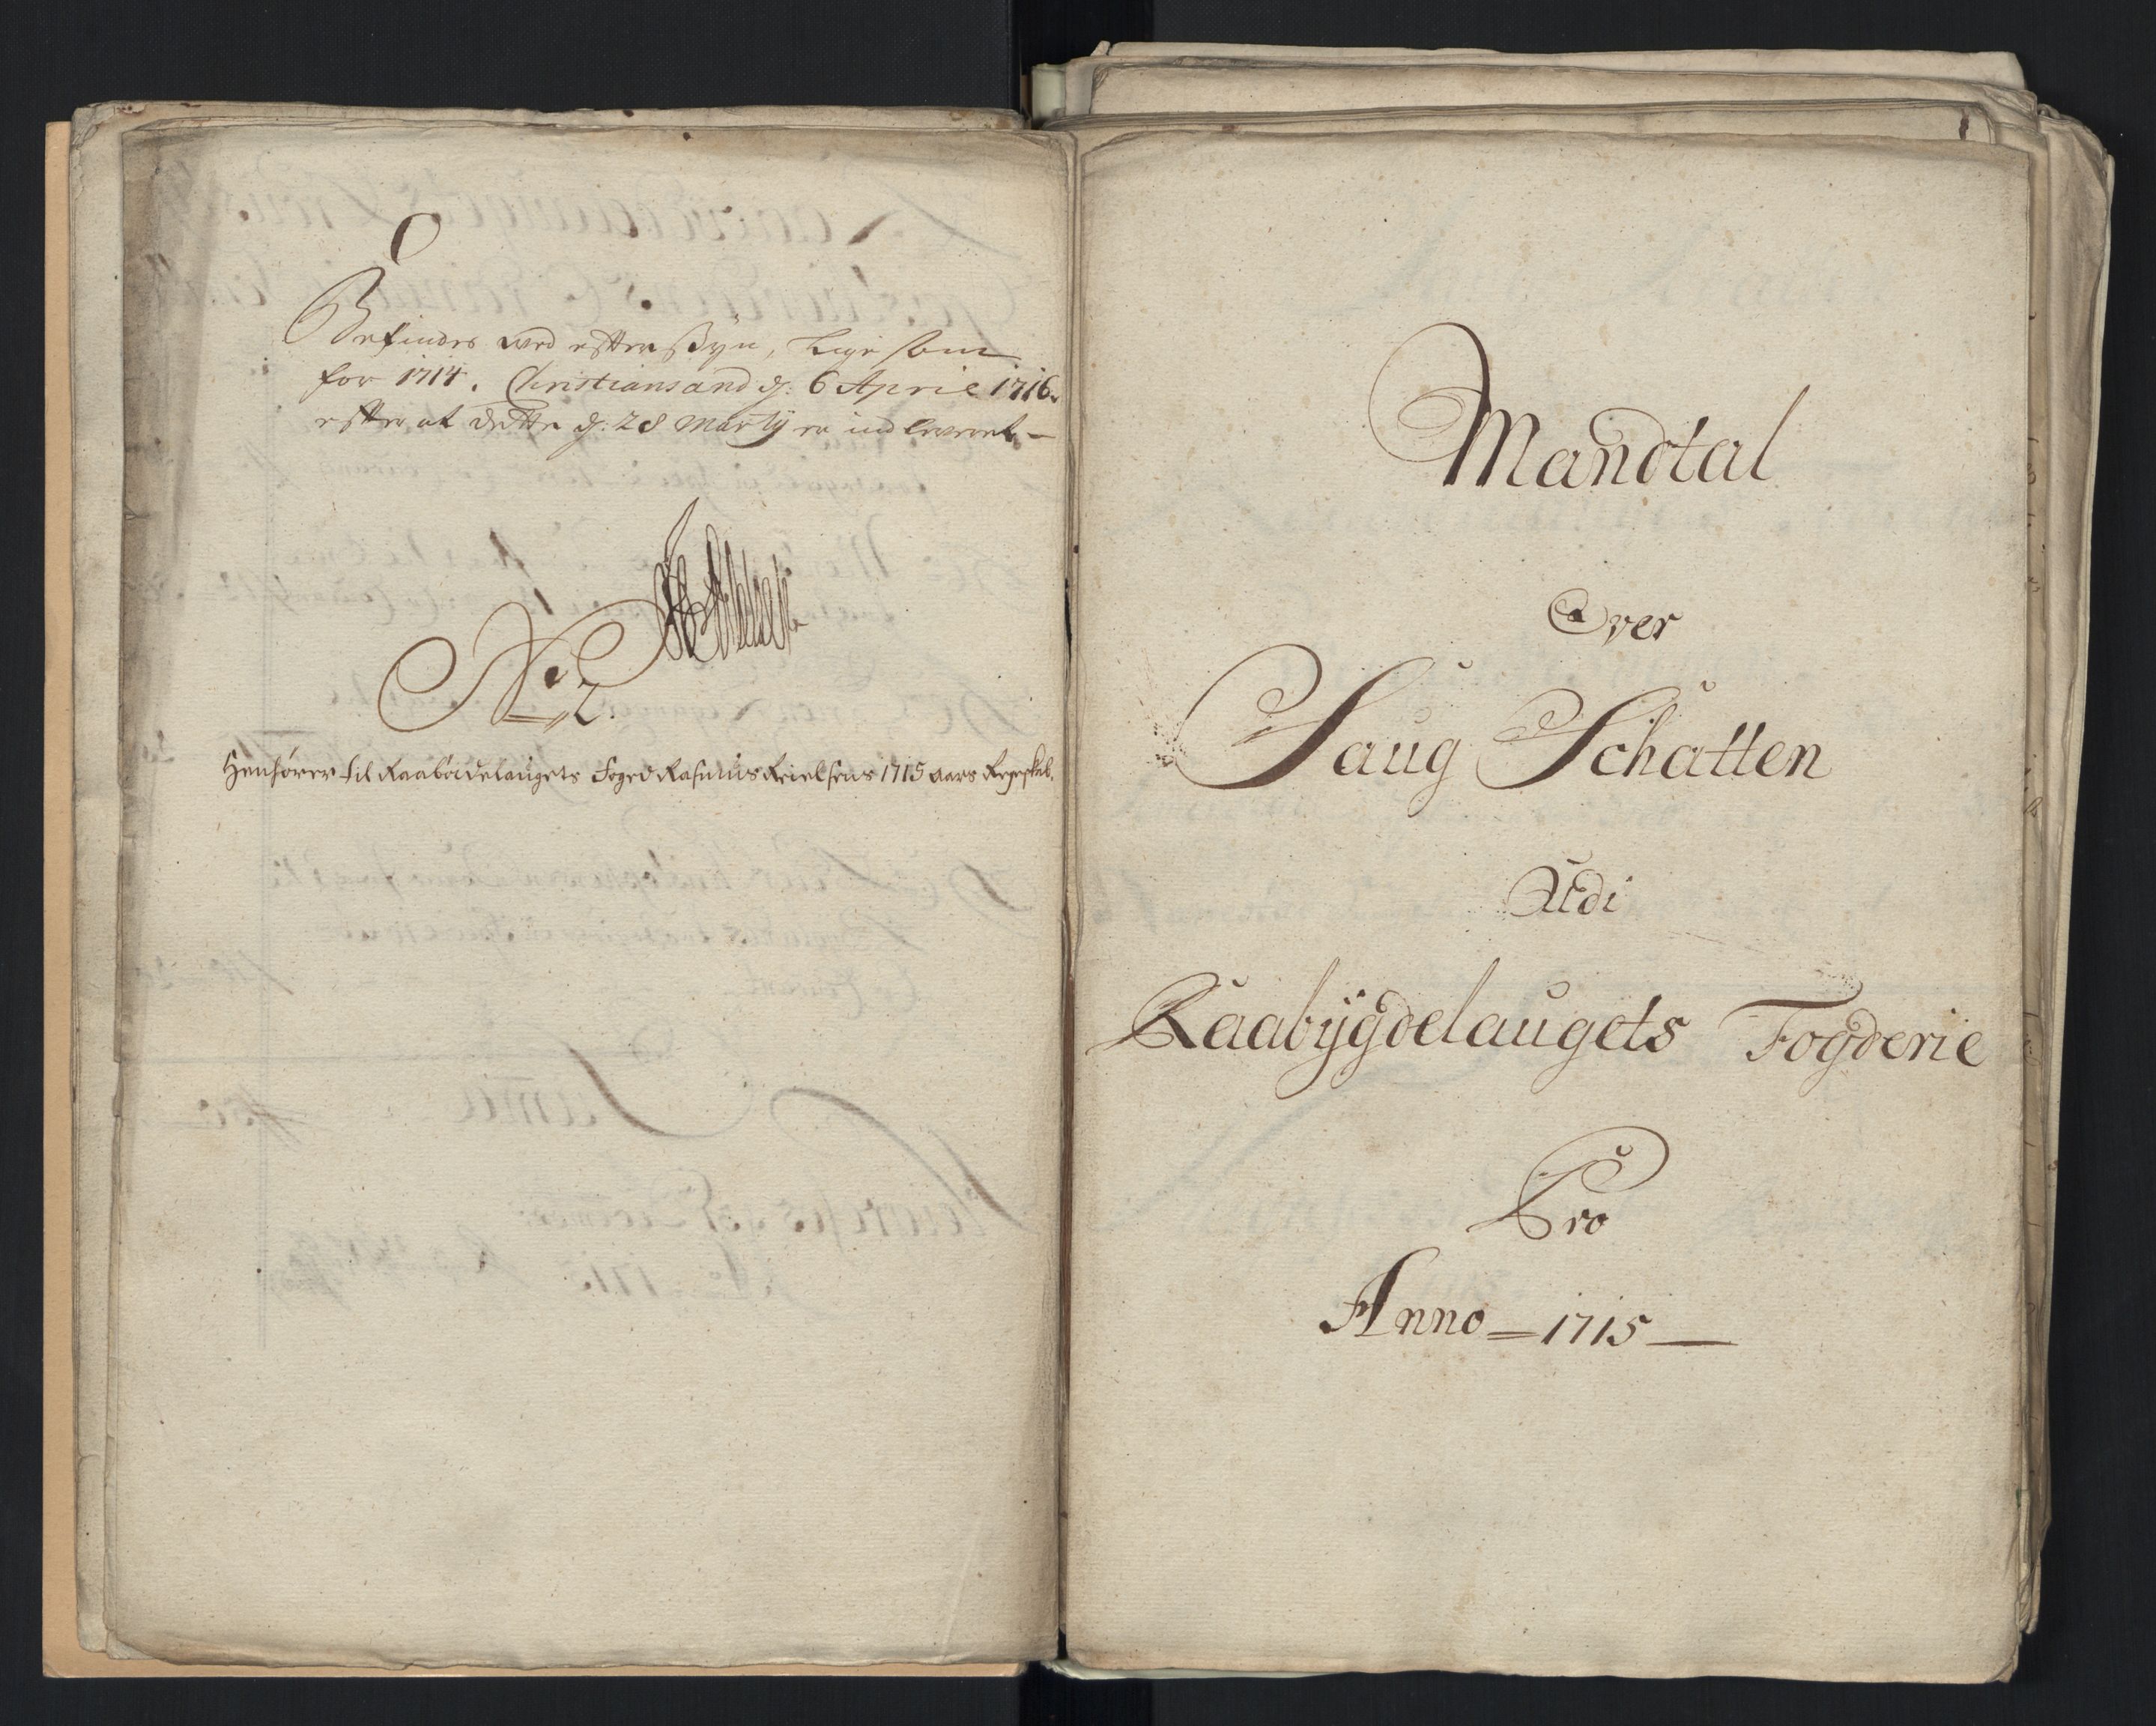 Befindes ved eftersyn, lige som
for 1714. Christiansand d: 6 Aprile 1716.
efter at dette d: 28 Martij er indleveret —
No 2.
Henhører til Raabøidelaugets Foged Rasmus Reielsens 1715 aars Regnskab.
Mandtal
Over
Saug Schatten
Udi
Raabÿgdelaugets Fogderie
Pro
Anno = 1715 —